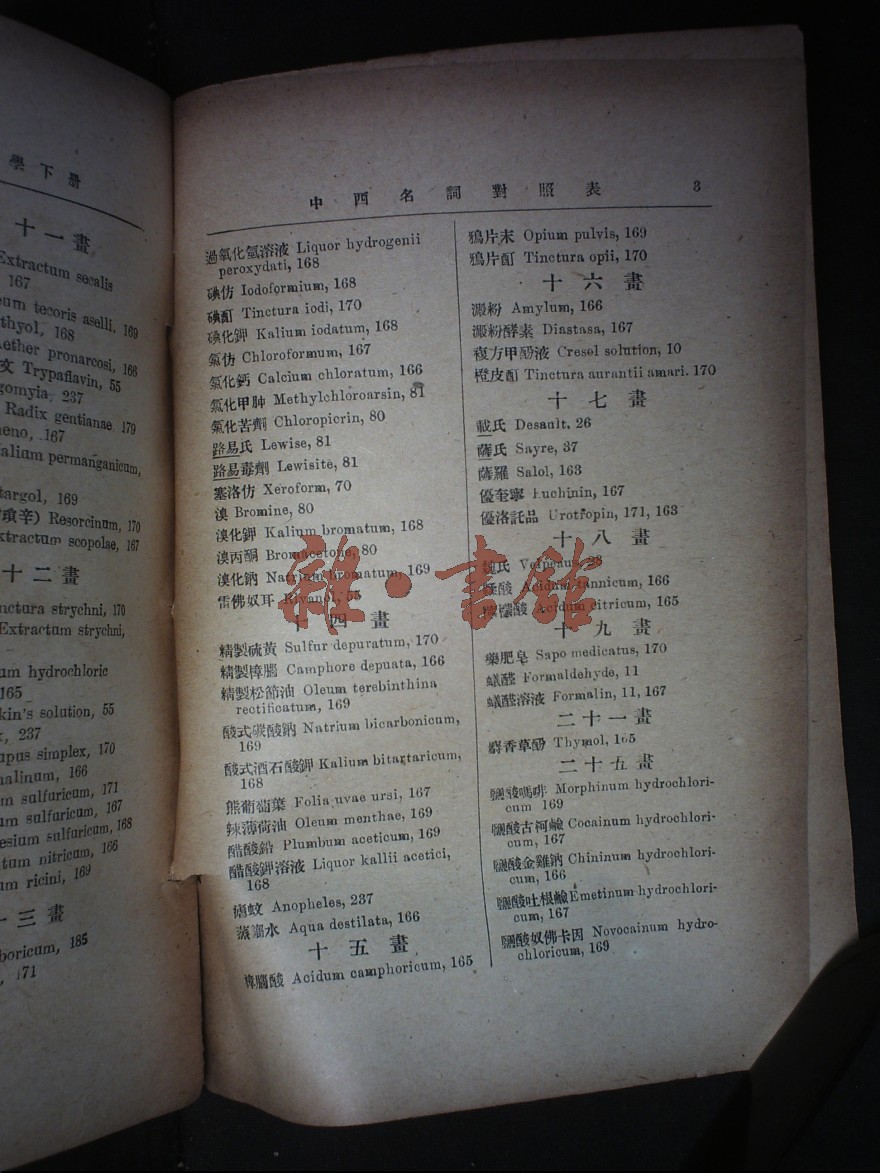 學下册
十一畫
Extractum secalis
167
tecoris aselli, 169
168
Aether pronarcosi, 166
文 Trypaflavin, 55
237
Radix gentianae 179
167
Kalium permanganicum,
169
Resorcinum, 170
Extractum scopolae, 167
十二畫
strychni, 170
Extractum strychni,
hydrochloric
165
solution, 55
237
simplex, 170
166
sulfuricum, 171
sulfuricum, 167
sulfuricum, 168
nitricum, 166
ricini, 169
十三畫
185
171
中西名詞對照表 3
過氧化氫溶液 Liquor hydrogenii
peroxydati, 168
碘仿 Iodoformium, 168
碘酊 Tinctura iodi, 170
碘化鉀 Kalium iodatum, 168
氯仿 Chloroformum, 167
氯化鈣 Calcium chloratum, 166
氯化甲肿 Methylchloroarsin, 81
氯化苦劑 Chloropicrin, 80
路易氏 Lewise, 81
路易毒劑 Lewisite, 81
塞洛仿 Xeroform, 70
溴 Bromine, 80
溴化鉀 Kalium bromatum, 168
溴丙酮 Bromacetone, 80
溴化鈉 Natrium bromatum, 169
雷佛奴耳 Rivanol, 55
十四畫
精製硫黃 Sulfur depuratum, 170
精製樟腦 Camphore depuata, 166
精製松節油 Oleum terebinthina
rectificatum, 169
酸式碳酸鈉 Natrium bicarbonicum,
169
酸式酒石酸鉀 Kalium bitartaricum,
168
熊葡萄葉 Folia uvae ursi, 167
辣薄荷油 Oleum menthae, 169
醋酸鉛 Plumbum aceticum, 169
醋酸鉀溶液 Liquor kallii acetici,
168
瘧蚊 Anopheles, 237
蒸溜水 Aqua destilata, 166
十五畫
樟腦酸 Acidum camphoricum, 165
鴉片末 Opium pulvis, 169
鴉片酊 Tinctura opii, 170
十六畫
澱粉 Amylum, 166
澱粉酵素 Diastasa, 167
複方甲酚液 Cresol solution, 10
橙皮酊 Tinctura aurantii amari. 170
十七畫
戴氏 Desault. 26
薩氏 Sayre, 37
薩羅 Salol, 163
優奎寧 Euchinin, 167
優洛託品 Urotropin, 171, 163
十八畫
魏氏 Velpeaus, 28
鞣酸 Acidum tannicum, 166
檸檬酸 Acidum citricum, 165
十九畫
藥肥皂 Sapo medicatus, 170
蟻醛 Formaldehyde, 11
蟻醛溶液 Formalin, 11, 167
二十一畫
麝香草酚 Thymol, 165
二十五畫
鹽酸嗎啡 Morphinum hydrochlori-
cum 169
鹽酸古柯鹼 Cocainum hydrochlori-
cum, 167
鹽酸金雞鈉 Chininum hydrochlori-
cum, 166
鹽酸吐根鹼 Emetinum hydrochlori-
cum, 167
鹽酸奴佛卡因 Novocainum hydro-
chloricum, 169
雜·書館